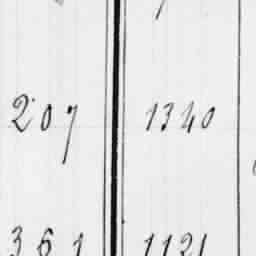 207 1340
361 1121